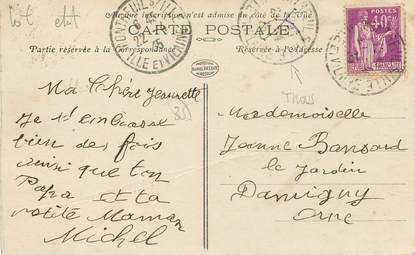 Aucune inscription n'est admise du côté de la Vue
CARTE POSTALE
Partie réservée à la Correspondance
Réservée à l'Adresse
POSTES
40c
ILLE ET VILAINE
Ma Chère Jeannette
Je t'embrasse
bien des fois
ainsi que ton
Papa et ta
petite Maman
Michel
Mademoiselle
Jeanne Bansard
le Jardin
Damigny
Orne